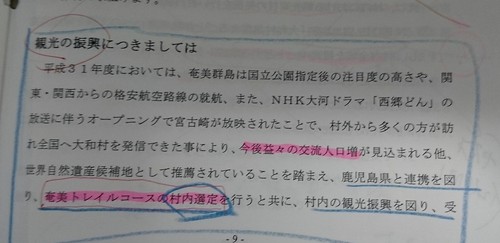 観光の振興につきましては
平成31年度においては、奄美群島は国立公園指定後の注目度の高さや、関
東・関西からの格安航空路線の就航、また、NHK大河ドラマ「西郷どん」の
放送に伴うオープニングで宮古崎が放映されたことで、村外から多くの方が訪
れ全国へ大和村を発信できた事により、今後益々の交流人口増が見込まれる他、
世界自然遺産候補地として推薦されていることを踏まえ、鹿児島県と連携を図
り、奄美トレイルコースの村内選定を行うと共に、村内の観光振興を図り、受
-9-